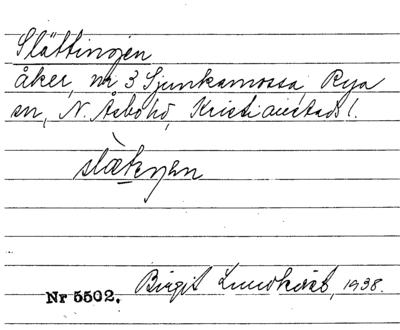 Slättingjen
åker, nr 3 Sjunkamossa, Rya
sn, N. Åsbo hd, Kristianstads l.
Nr 5502. Birgit Lundkvist, 1938.